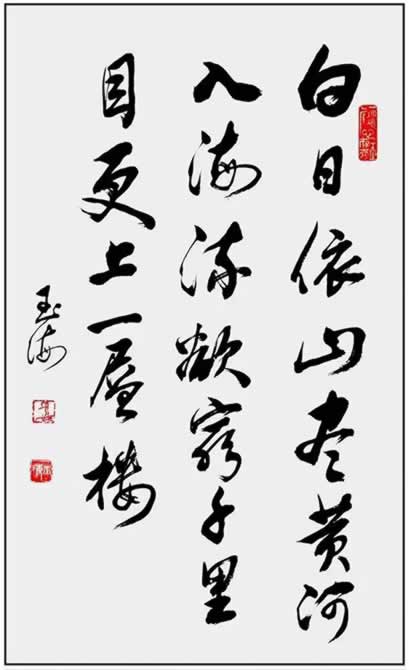 白日依山尽黄河
入海流欲穷千里
目更上一层楼
玉海